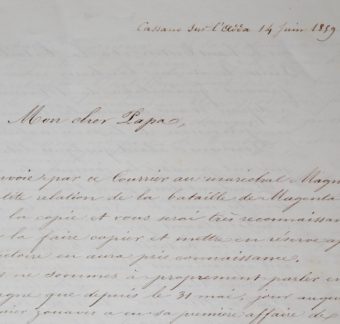 Cassano sur l'Adda 14 Juin 1859
Mon cher Papa,
par ce Courrier au maréchal
relation de la bataille de Magenta
la copie et vous serai très
la faire copier et mettre en réserve
en aura pris connaissance.
ne sommes à proprement parler en
que depuis le 31 mai, jour
zouaves a eu sa première affaire de